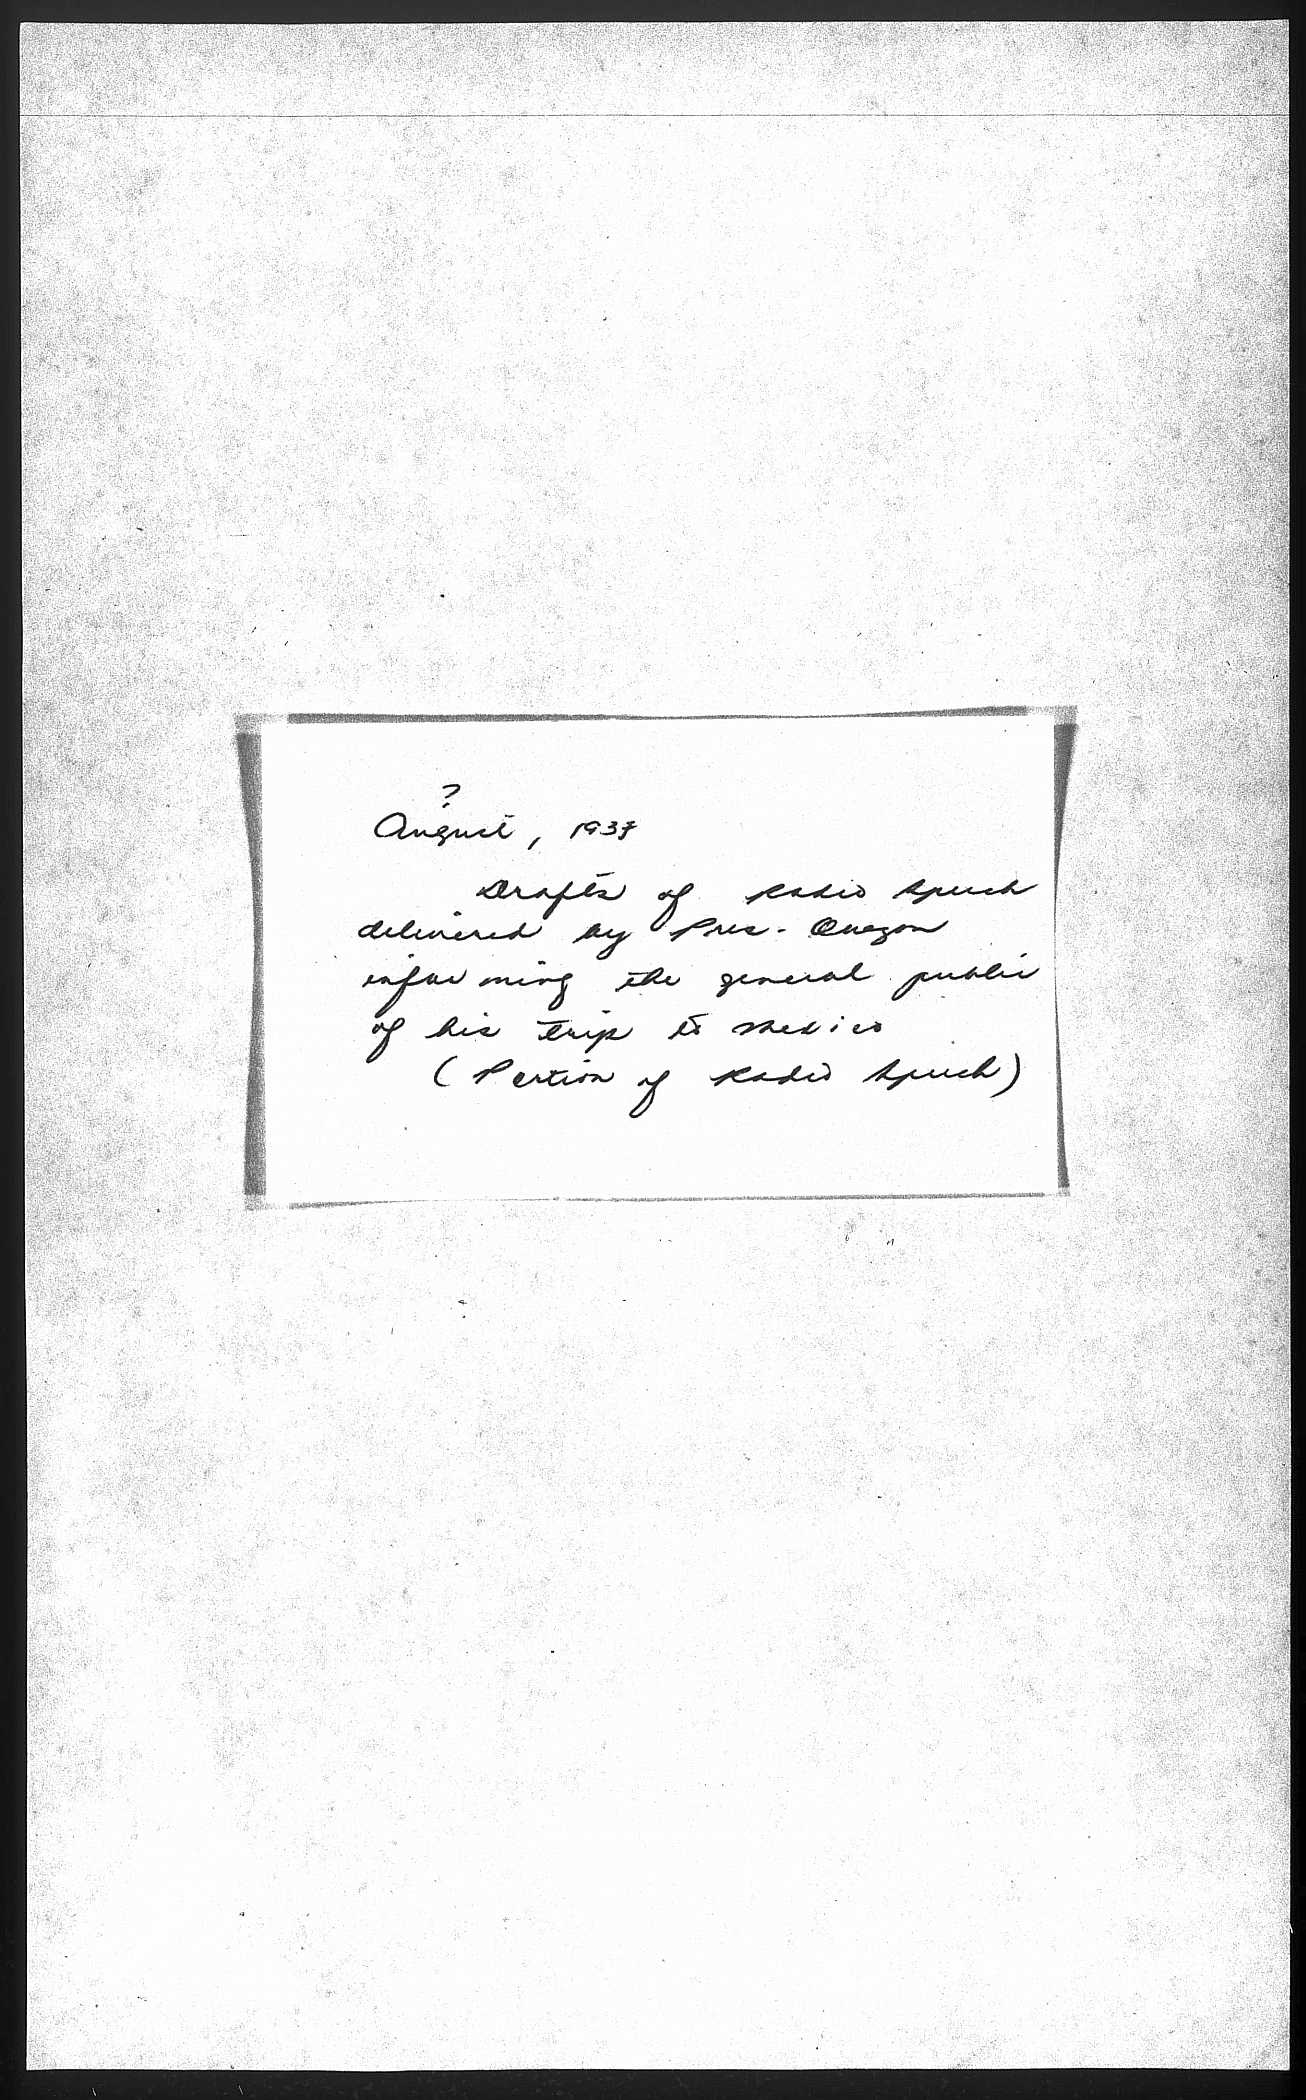 ?
August, 1937
Drafts of Radio Speech
delivered by Pres. Quezon
informing the general public
of his trip to Mexico
(Portion of Radio Speech)